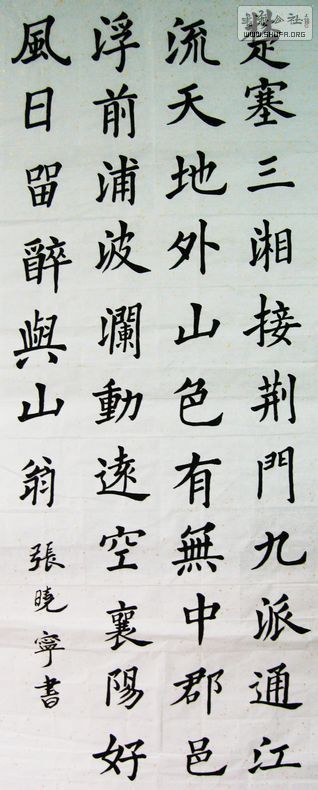 楚塞三湘接荆門九派通江
流天地外山色有無中郡邑
浮前浦波瀾動遠空襄陽好
風日留醉與山翁
張曉寧書
书法公社
WWW.SHUFA.ORG